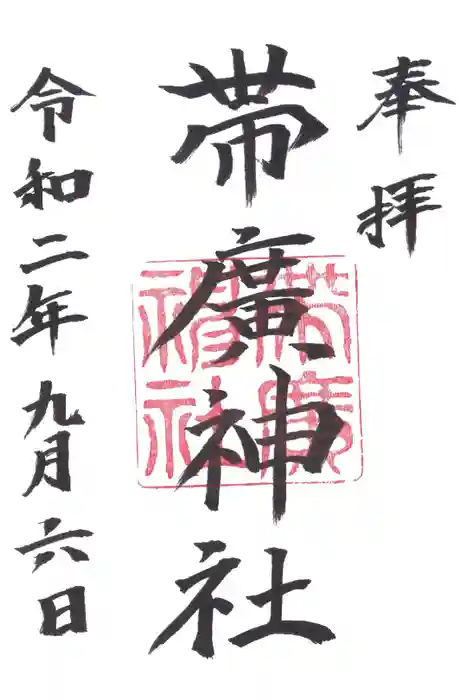 奉拝
帯廣神社
帯廣
神社
令和二年九月六日